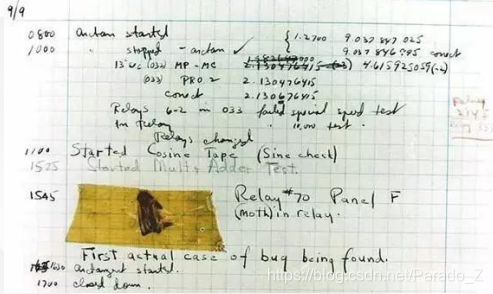 9/9
0800 antan started { 1.2700 9.037 847 025
1000 " stopped - antan ✓ 9.037 846 995 correct
13" uc (032) MP - MC 2.130476415 4.615925059(-2)
(033) PRO 2 2.130476415
correct 2.130676415
Relays 6-2 in 033 failed special speed test
in Relay " 10,000 test.
Relays changed
1100 Started Cosine Tape (Sine check)
1525 Started Mult + Adder Test.
1545 Relay #70 Panel F
(moth) in relay.
First actual case of bug being found.
1630 antangent started.
1700 closed down.
https://blog.csdn.net/Parado_Z